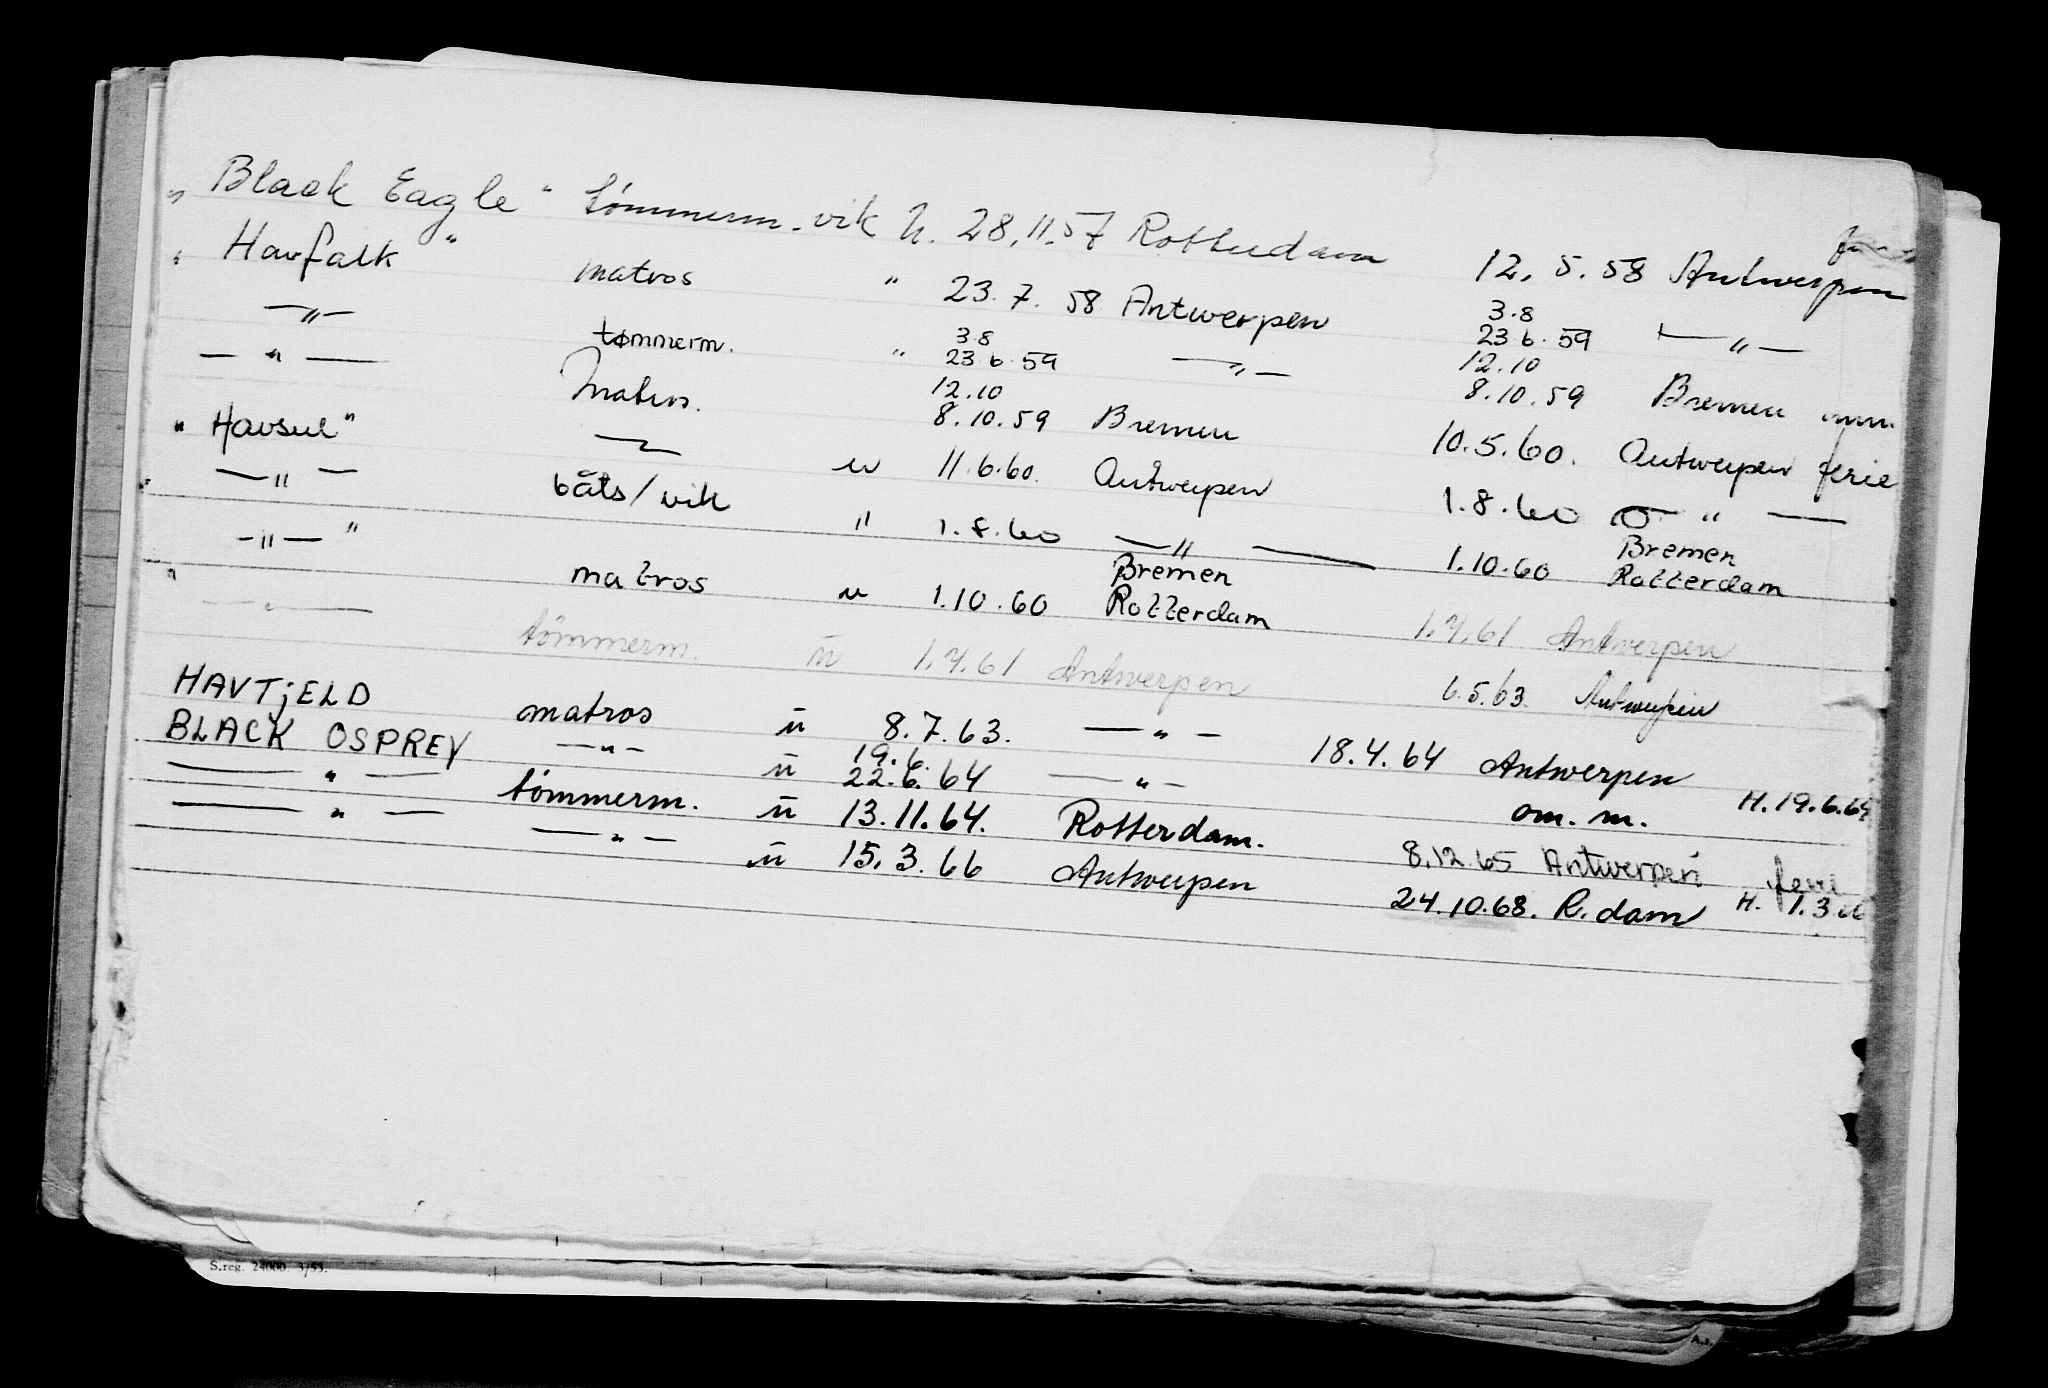 "Black Eagle" tömmerm. vik u. 28.11.57 Rotterdam 12.5.58 Antwerpen
"Havfalk" matros " 23.7.58 Antwerpen 3.8 23.6.59 — " —
— " — tømmerm. " 3.8 23.6.59 — " — 12.10 8.10.59 Bremen
— " — Matros. 12.10 8.10.59 Bremen 10.5.60. Antwerpen ferie
"Havsul" — " — u 11.6.60. Antwerpen 1.8.60 — " —
— " — båts/vik " 1.8.60 — " — 1.10.60 Bremen Rotterdam
— " — " matros u 1.10.60 Bremen Rotterdam 1.4.61 Antwerpen
— " — tömmerm. u 1.4.61 Antwerpen 6.5.63. Antwerpen
HAVTJELD matros u 8.7.63. — " — 18.4.64 Antwerpen H. 19.6.64
BLACK OSPREY — " — u 19.6. 22.6.64 — " — om. m.
— " — tömmerm. u 13.11.64. Rotterdam. 8.12.65 Antwerpen H. 1.3.66
— " — — " — u 15.3.66 Antwerpen 24.10.68. R.dam
S.reg. 24000 3/53.